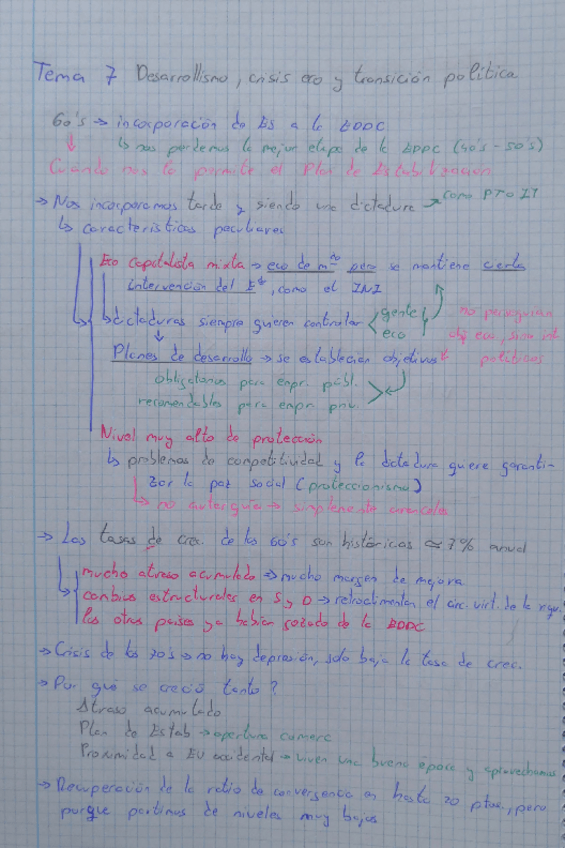 Tema 7 Desarrollismo, crisis eco y transición política
60's → incorporación de ES a la EDDC
↳ nos perdemos la mejor etapa de la EDDC (40's - 50's)
↓
Cuando nos lo permite el Plan de Estabilización
→ Nos incorporamos tarde y siendo una dictadura → como PT o IT
↳ características peculiares
Eco capitalista mixta → eco de mdo pero se mantiene cierta
intervención del Eº, como el INI
↳ dictaduras siempre quieren controlar gente
eco
no perseguían
obj eco, sino int
políticos
↓
Planes de desarrollo → se establecían objetivos*
obligatorios para empr. públ.
recomendables para empr priv.
Nivel muy alto de protección
↳ problemas de competitividad y la dictadura quiere garanti-
zar la paz social (proteccionismo)
↳ no autarquía → simplemente aranceles
→ Las tasas de crec. de los 60's son históricas ≈ 7% anual
mucho atraso acumulado → mucho margen de mejora
cambios estructurales en S y D → retroalimentan el circ. virt. de la
los otros países ya habían gozado de la EDDC
→ Crisis de los 70's → no hay depresión, solo baja la tasa de crec.
→ Por qué se creció tanto?
Atraso acumulado
Plan de Estab → apertura comerc
Proximidad a EU occidental → viven una buena época y aprovechamos
→ Recuperación de la ratio de convergencia en hasta 20 ptos., pero
porque partimos de niveles muy bajos